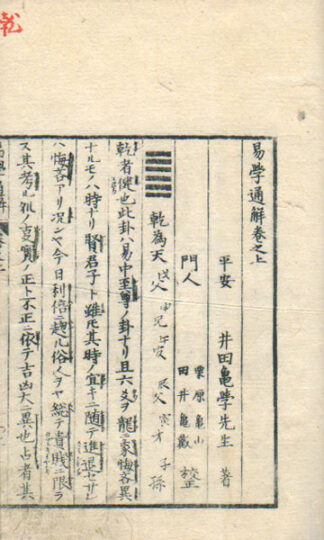 乾
易学通解巻之上
平安 井田亀学先生 著
門人 栗原亀山
田井亀歡 校
乾為天 父 兄 父 才 子孫
乾者健也此卦ハ易中至尊ノ卦ナリ且六爻ヲ龍ニ象悔吝異
ナルモノハ時ナリ賢君子ト雖ㇺ其時ノ宜キニ随テ進退セサレ
ハ悔吝アリ况ンヤ今日利倍ニ趨ル俗人ヲヤ総テ貴賎ニ限ラ
ス其考ル処ノ事実ノ正ト不正ニ依テ吉凶大ニ異也占者其